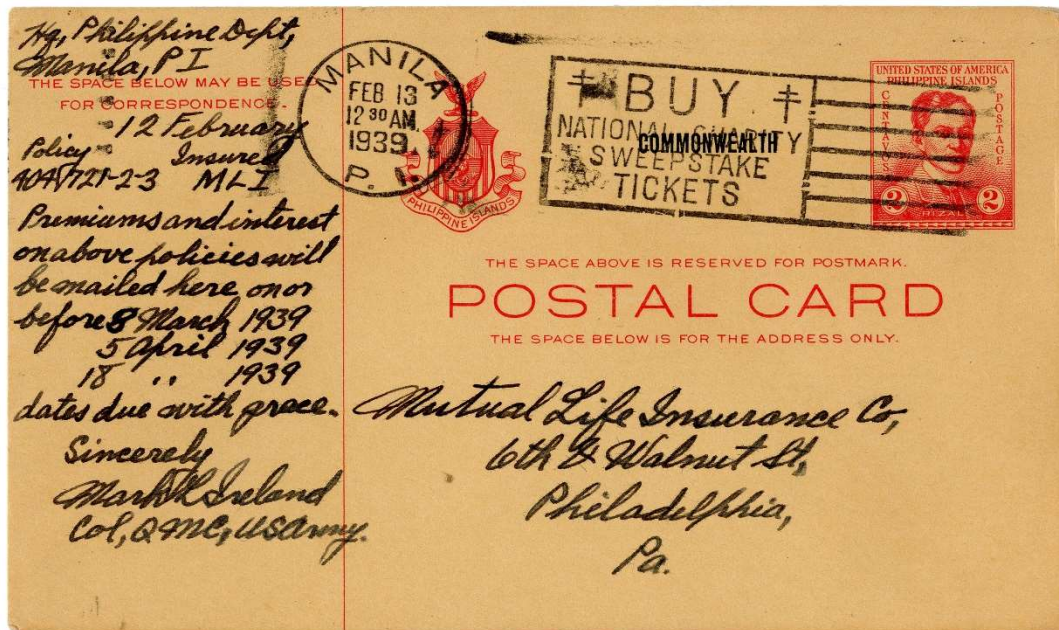 Hq, Philippine Dept,
Manila, P I
THE SPACE BELOW MAY BE USED
FOR CORRESPONDENCE.
12 February
Policy Insured
404,721-2-3 MLI
Premiums and interest
on above policies will
be mailed here on or
before 8 March 1939
5 April 1939
18 " 1939
dates due with grace.
Sincerely
Mark L Ireland
Col, QMC, US Army.
MANILA
FEB 13
12 30 AM
1939
P. I.
PHILIPPINE ISLANDS
BUY
NATIONAL CHARITY
SWEEPSTAKE
TICKETS
COMMONWEALTH
UNITED STATES OF AMERICA
PHILIPPINE ISLANDS
CENTAVOS
POSTAGE
2 RIZAL 2
THE SPACE ABOVE IS RESERVED FOR POSTMARK.
POSTAL CARD
THE SPACE BELOW IS FOR THE ADDRESS ONLY.
Mutual Life Insurance Co,
6th & Walnut St,
Philadelphia,
Pa.